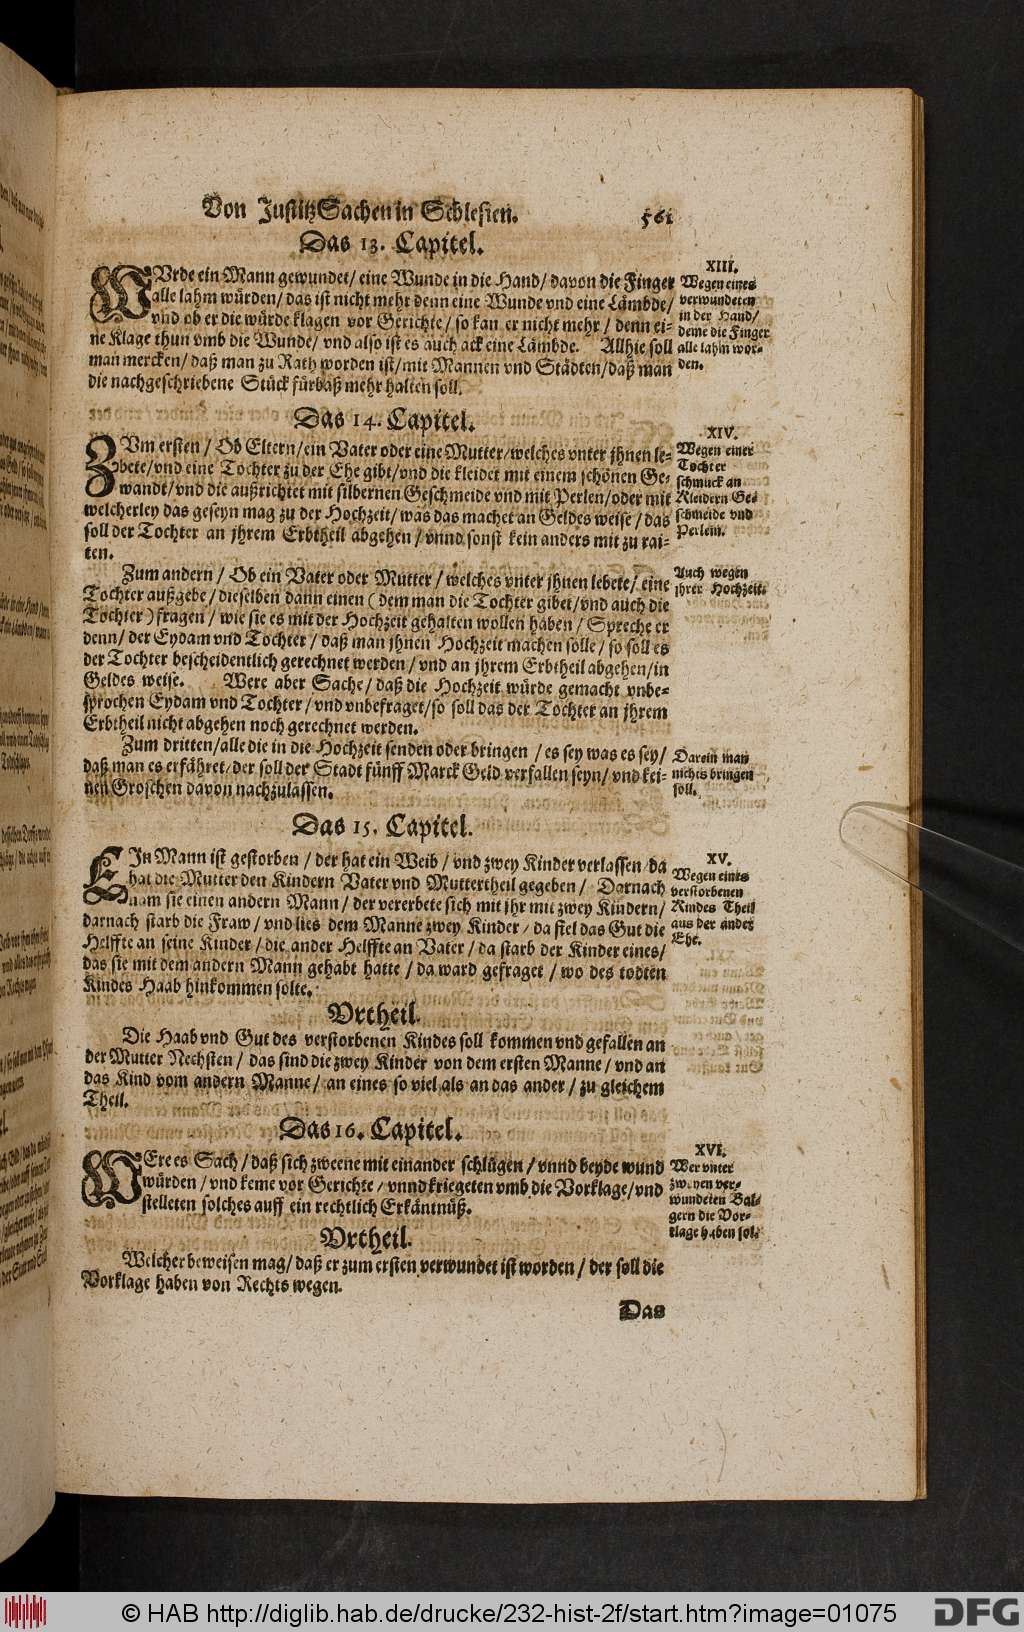 Von JustitzSachen in Schlesien. 561
Das 13. Capitel.
WVrde ein Mann gewundet/ eine Wunde in die Hand/ davon die Finger
alle lahm würden/ das ist nicht mehr denn eine Wunde vnd eine Lämbde/
vnd ob er die würde klagen vor Gerichte/ so kan er nicht mehr/ denn ei-
ne Klage thun vmb die Wunde/ vnd also ist es auch ack eine Lämbde. Allhie soll
man mercken/ daß man zu Rath worden ist/ mit Mannen vnd Städten/ daß man
die nachgeschriebene Stück fürbaß mehr halten soll.
XIII.
Wegen eines
verwundeten
in der Hand/
deme die Finger
alle lahm wor-
den.
Das 14. Capitel.
ZVm ersten/ Ob Eltern/ ein Vater oder eine Mutter/ welches vnter jhnen le-
bete/ vnd eine Tochter zu der Ehe gibt/ vnd die kleidet mit einem schönen Ge-
wandt/ vnd die außrichtet mit silbernen Geschmeide vnd mit Perlen/ oder mit
welcherley das geseyn mag zu der Hochzeit/ was das machet an Geldes weise/ das
soll der Tochter an jhrem Erbtheil abgehen/ vnnd sonst kein anders mit zu rai-
ten.
XIV.
Wegen einer
Tochter
schmuck an
Kleidern Ge-
schmeide vnd
Perlein.
Zum andern/ Ob ein Vater oder Mutter/ welches vnter jhnen lebete/ eine
Tochter außgebe/ dieselben dann einen (dem man die Tochter gibet/ vnd auch die
Tochter) fragen/ wie sie es mit der Hochzeit gehalten wollen haben/ Spreche er
denn/ der Eydam vnd Tochter/ daß man jhnen Hochzeit machen solle/ so soll es
der Tochter bescheidentlich gerechnet werden/ vnd an jhrem Erbtheil abgehen/ in
Geldes weise. Were aber Sache/ daß die Hochzeit würde gemacht vnbe-
sprochen Eydam vnd Tochter/ vnd vnbefraget/ so soll das der Tochter an jhrem
Erbtheil nicht abgehen noch gerechnet werden.
Auch wegen
jhrer Hochzeit.
Zum dritten/ alle die in die Hochzeit senden oder bringen/ es sey was es sey/
daß man es erfähret/ der soll der Stadt fünff Marck Geld verfallen seyn/ vnd kei-
nen Groschen davon nachzulassen.
Darein man
nichts bringen
soll.
Das 15. Capitel.
EIn Mann ist gestorben/ der hat ein Weib/ vnd zwey Kinder verlassen/ da
hat die Mutter den Kindern Vater vnd Muttertheil gegeben/ Darnach
nam sie einen andern Mann/ der vererbete sich mit jhr mit zwey Kindern/
darnach starb die Fraw/ vnd lies dem Manne zwey Kinder/ da fiel das Gut die
Helffte an seine Kinder/ die ander Helffte an Vater/ da starb der Kinder eines/
das sie mit dem andern Mann gehabt hatte/ da ward gefraget/ wo des todten
Kindes Haab hinkommen solte.
XV.
Wegen eines
verstorbenen
Kindes Theil
aus der ander
Ehe.
Vrtheil.
Die Haab vnd Gut des verstorbenen Kindes soll kommen vnd gefallen an
der Mutter Nechsten/ das sind die zwey Kinder von dem ersten Manne/ vnd an
das Kind vom andern Manne/ an eines so viel als an das ander/ zu gleichem
Theil.
Das 16. Capitel.
WEre es Sach/ daß sich zweene mit einander schlügen/ vnnd beyde wund
würden/ vnd keme vor Gerichte/ vnnd kriegeten vmb die Vorklage/ vnd
stelleten solches auff ein rechtlich Erkäntnüß.
XVI.
Wer vnter
zweyen ver-
wundeten Bal-
gern die Vor-
klage haben sol.
Vrtheil.
Welcher beweisen mag/ daß er zum ersten verwundet ist worden/ der soll die
Vorklage haben von Rechts wegen.
Das
© HAB http://diglib.hab.de/drucke/232-hist-2f/start.htm?image=01075
DFG